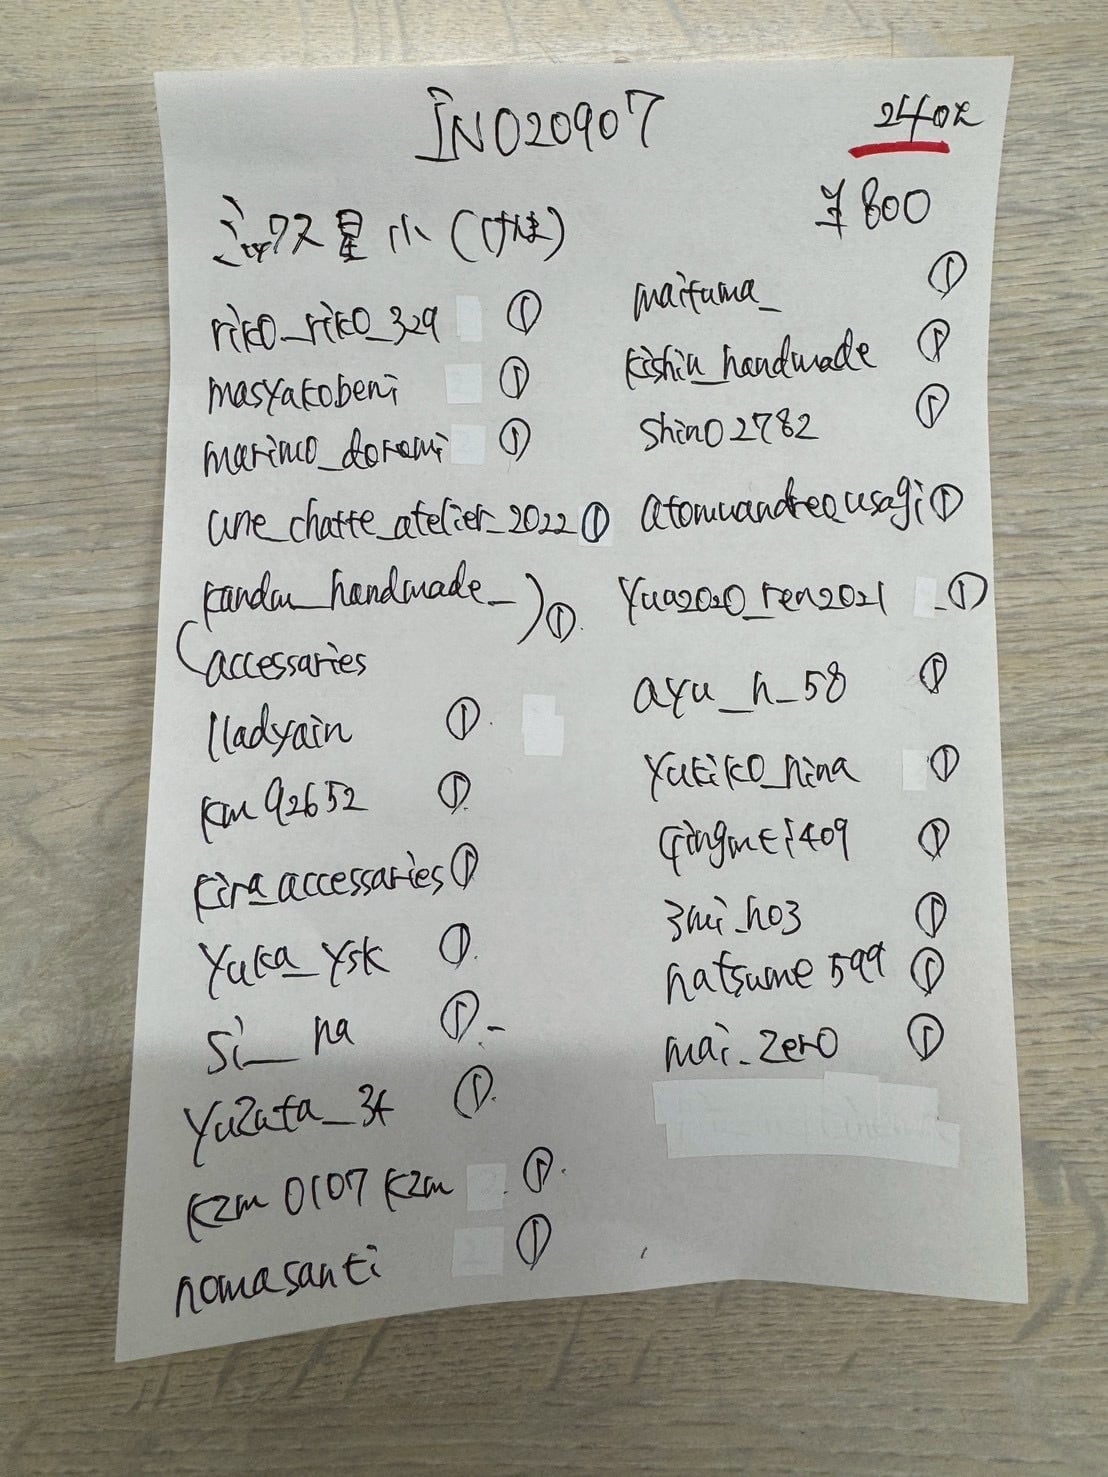 INO20907
240z
¥800
ミックス星小(け様)
riko_riko_329 ①
masyakobeni ①
marimo_doremi ①
une_chatte_atelier_2022 ①
kandm_handmade_
accessaries ①
lladyain ①
km92652 ①
kira_accessaries ①
yuka_ysk ①
si__na ①
yuzuta_34 ①
kzm0107kzm ①
nomasanti ①
maifuma_ ①
kishin_handmade ①
shino2782 ①
atomuandreo_usagi ①
yua2020_ren2021 ①
ayu_h_58 ①
yukiko_nina ①
qingmei409 ①
3mi_ho3 ①
natsume599 ①
mai_zero ①